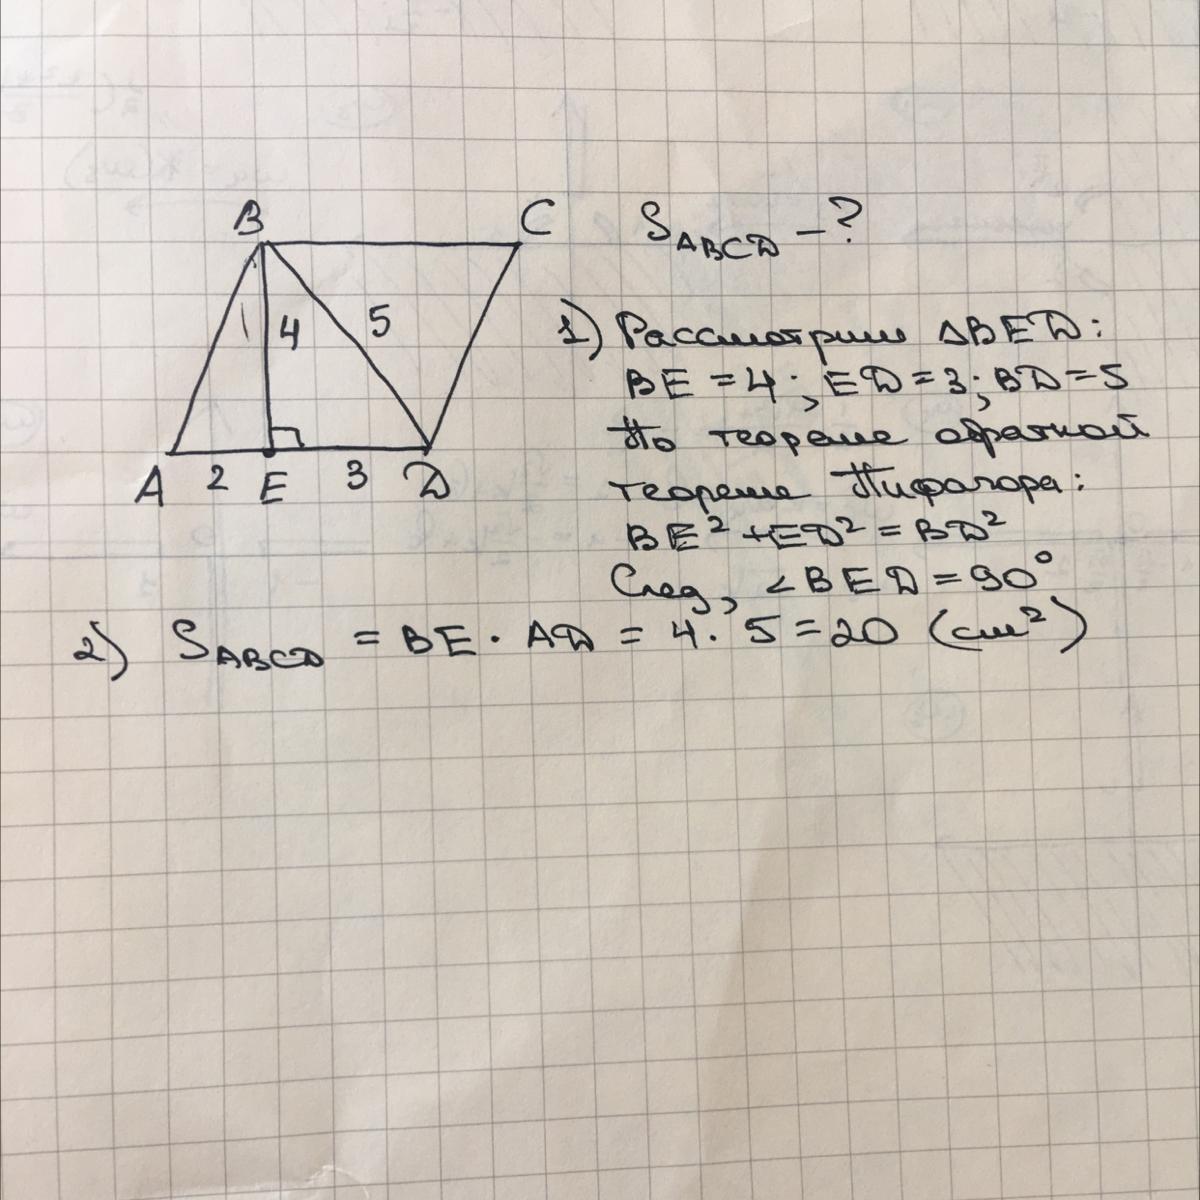 B C
4 5
A 2 E 3 D
S_ABCD – ?
1) Рассмотрим △BED:
BE = 4; ED = 3; BD = 5
По теореме обратной
теореме Пифагора:
BE² + ED² = BD²
След, ∠BED = 90°
2) S_ABCD = BE · AD = 4 · 5 = 20 (см²)